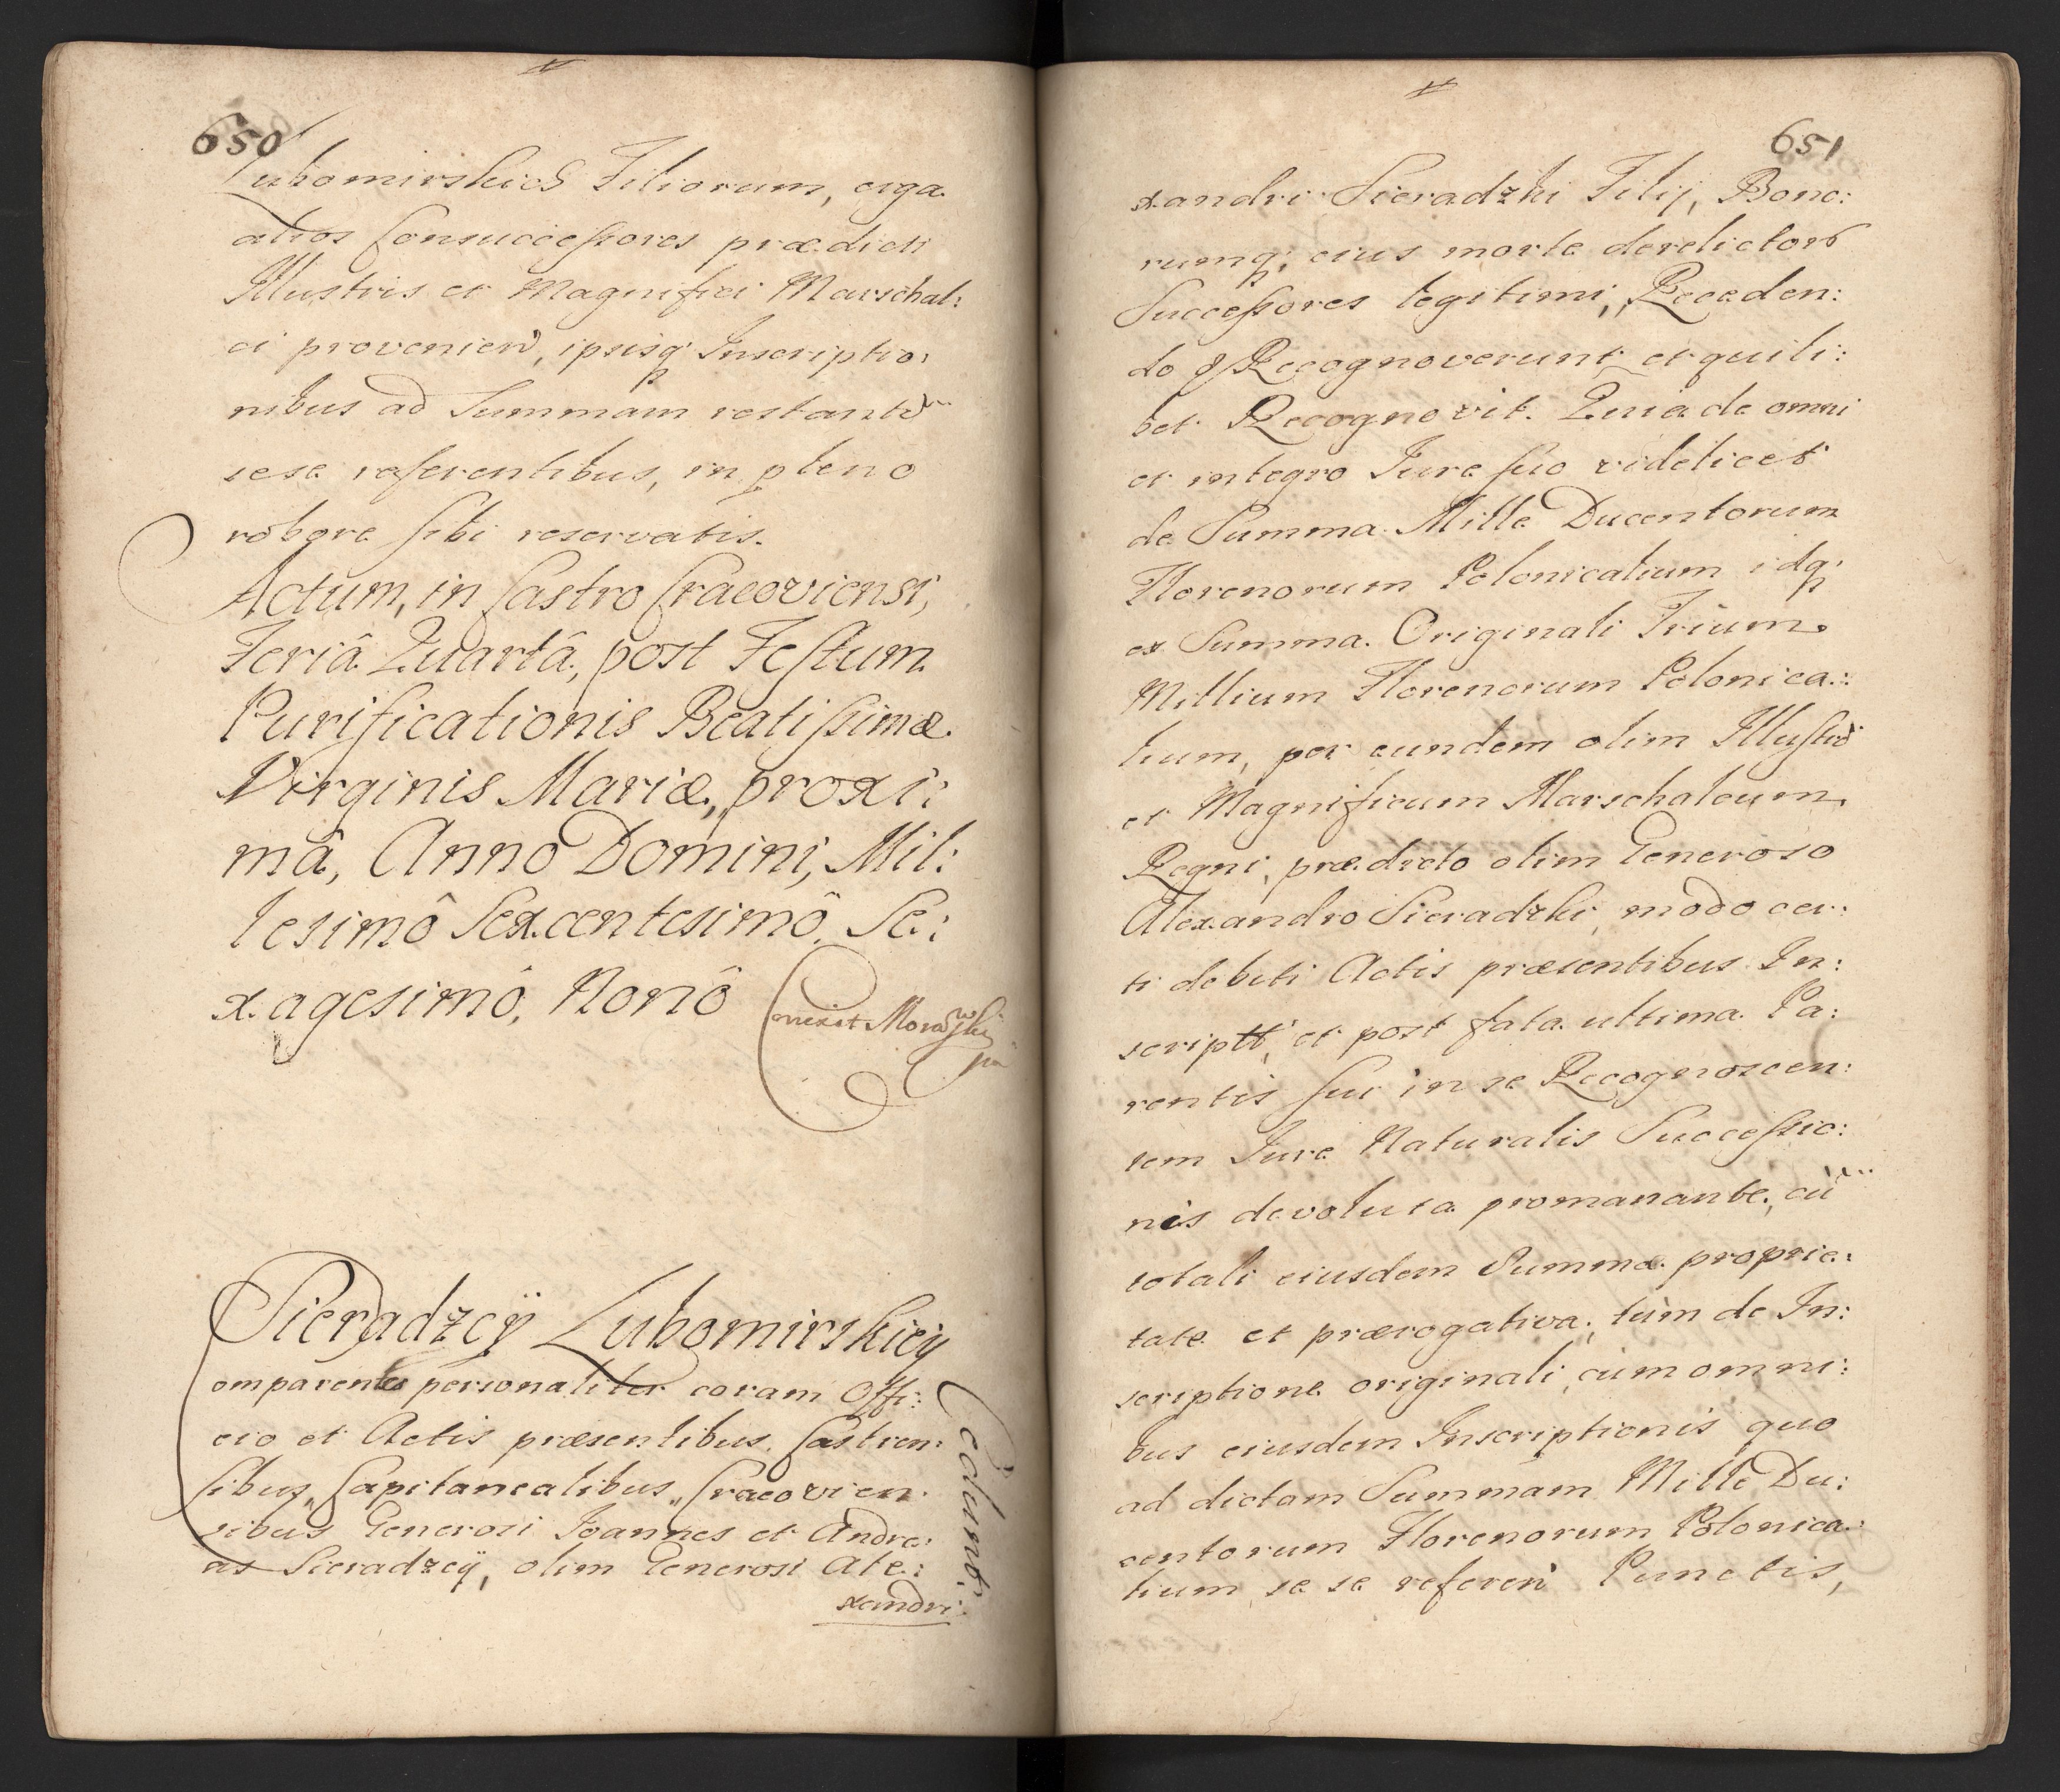 650
Lubomirskich Filiorum, erga
alios Consuccessores prædicti
Illustris et Magnifici Marschal:
ci provenien̄, ipsisq; Inscriptio:
nibus ad Summam restantem
sese referentibus, in pleno
robore sibi reservatis.
Actum, in Castro Cracoviensi,
Feriâ Quartâ, post Festum
Purificationis Beatissimæ
Virginis Mariæ, proxi:
mâ, Anno Domini, Mil:
lesimô Sexcentesimô, Se:
xagesimô, Nonô
Conexit Morawski
mp
Sieradzcÿ Lubomirskieÿ
Comparentes personaliter coram Offi:
cio et Actis præsentibus Castren:
sibus, Capitanealibus, Cracovien:
sibus Generosi Joannes et Andre:
as Sieradzcÿ, olim Generosi Ale:
xandri
651
xandri Sieradzki Filij, Bono:
rumq; eius morte derelictors
Successores legitimi, Receden:
do &c Recognoverunt et quili:
bet Recognovit. Quia de omni
et integro Jure suo videlicet
de Summa Mille Ducentorum
Florenorum Polonicalium idq;
ex Summa Originali Trium
Millium Florenorum Polonica:
lium, per eundem olim Illustrem
et Magnificum Marschalcum
Regni, prædicto olim Generoso
Alexandro Sieradzki, modo cer:
ti debiti Actis præsentibus In:
script, et post fata ultima Pa:
rentis sui in se Recognoscen:
tem Jure Naturalis Successio:
nis devoluta promanante, cum
totali eiusdem Summæ proprie:
tate et prærogativa, tùm de In:
scriptione originali cum omni:
bus eiusdem Inscriptionis quo
ad dictam Summam Mille Du:
centorum Florenorum Polonica:
lium se se referen̄ Punctis,